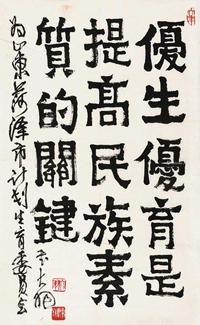 優生優育是
提高民族素
質的關鍵
为山东菏泽市计划生育委员会